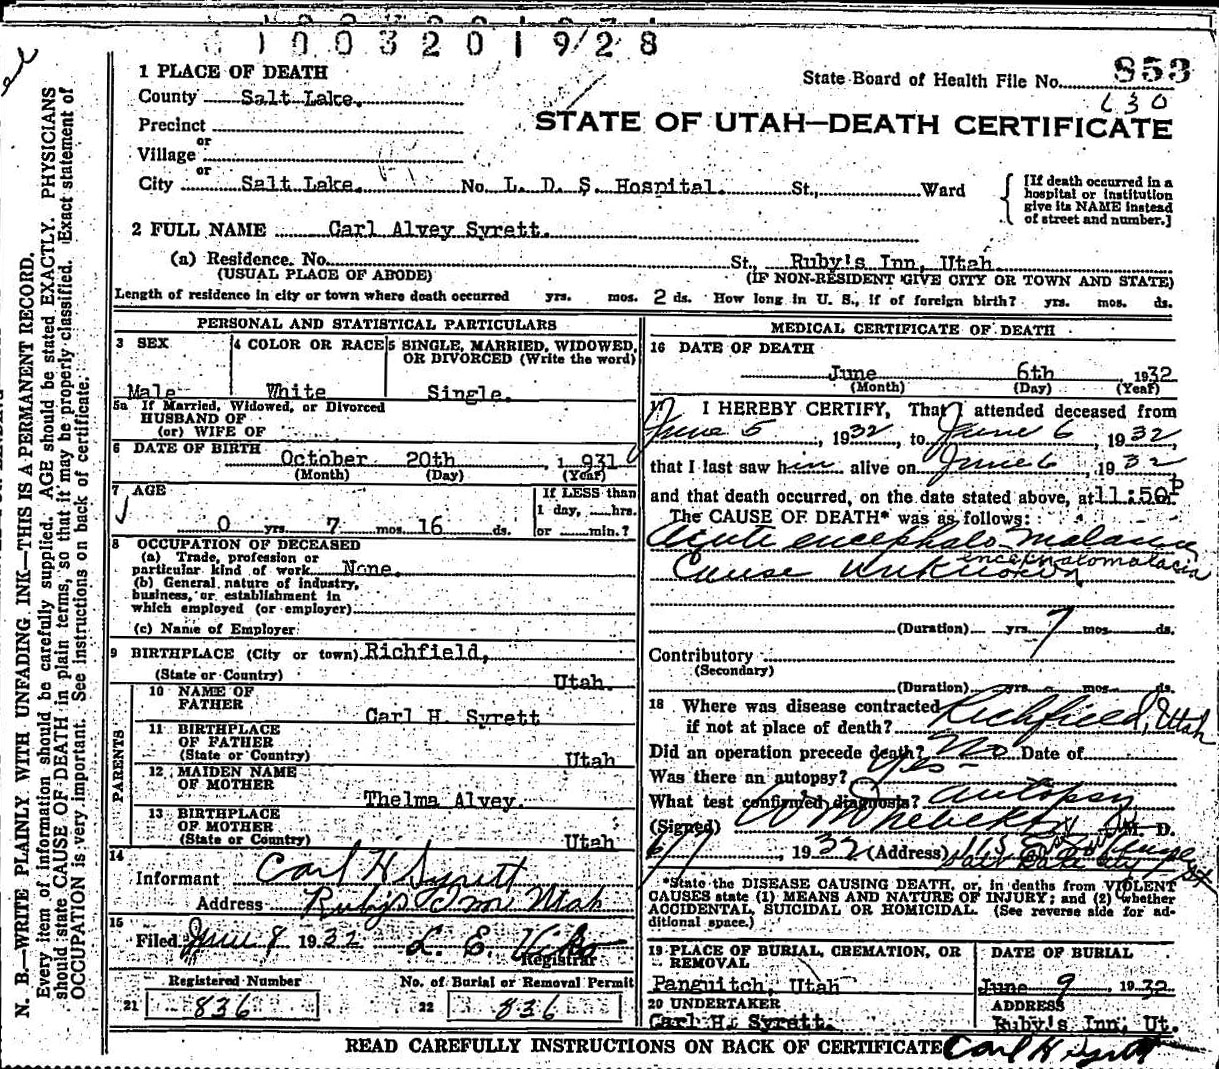 1003201928
1 PLACE OF DEATH
State Board of Health File No. 853
County Salt Lake.
630
STATE OF UTAH—DEATH CERTIFICATE
Precinct
or
Village
or
City Salt Lake. No. L. D. S. Hospital. St., Ward
[If death occurred in a
hospital or institution
give its NAME instead
of street and number.]
2 FULL NAME Carl Alvey Syrett.
(a) Residence. No. St., Ruby's Inn, Utah
(USUAL PLACE OF ABODE) (IF NON-RESIDENT GIVE CITY OR TOWN AND STATE)
Length of residence in city or town where death occurred yrs. mos. 2 ds. How long in U. S., if of foreign birth? yrs. mos. ds.
PERSONAL AND STATISTICAL PARTICULARS
3 SEX 4 COLOR OR RACE 5 SINGLE, MARRIED, WIDOWED,
OR DIVORCED (Write the word)
Male White Single.
5a If Married, Widowed, or Divorced
HUSBAND OF
(or) WIFE OF
6 DATE OF BIRTH October 20th, 1931
(Month) (Day) (Year)
7 AGE
If LESS than
1 day, hrs.
0 yrs. 7 mos. 16 ds. or min.?
8 OCCUPATION OF DECEASED
(a) Trade, profession or
particular kind of work None.
(b) General nature of industry,
business, or establishment in
which employed (or employer)
(c) Name of Employer
9 BIRTHPLACE (City or town) Richfield,
(State or Country) Utah.
PARENTS
10 NAME OF
FATHER Carl H. Syrett
11 BIRTHPLACE
OF FATHER
(State or Country) Utah
12 MAIDEN NAME
OF MOTHER
Thelma Alvey.
13 BIRTHPLACE
OF MOTHER
(State or Country) Utah
14
Informant Carl H Syrett
Address Ruby's Inn Utah
15
Filed June 8 1932 L. E. Viko
Registrar
Registered Number No. of Burial or Removal Permit
21 836 22 836
MEDICAL CERTIFICATE OF DEATH
16 DATE OF DEATH
June 6th 1932
(Month) (Day) (Year)
17 I HEREBY CERTIFY, That I attended deceased from
June 5, 1932, to June 6, 1932,
that I last saw him alive on June 6, 1932
and that death occurred, on the date stated above, at 11:50 P
The CAUSE OF DEATH* was as follows:
Acute encephalo malacia
encephalomalacia
Cause unknown
(Duration) yrs. 7 mos. ds.
Contributory
(Secondary)
(Duration) yrs. mos. ds.
18 Where was disease contracted
if not at place of death? Richfield, Utah
Did an operation precede death? No Date of
Was there an autopsy? Yes
What test confirmed diagnosis? Autopsy
(Signed) M. D.
6/7, 1932 (Address) 115
*State the DISEASE CAUSING DEATH, or, in deaths from VIOLENT
CAUSES state (1) MEANS AND NATURE OF INJURY; and (2) whether
ACCIDENTAL, SUICIDAL OR HOMICIDAL. (See reverse side for ad-
ditional space.)
19 PLACE OF BURIAL, CREMATION, OR
REMOVAL
DATE OF BURIAL
Panguitch, Utah June 9, 1932
20 UNDERTAKER ADDRESS
Carl H. Syrett. Ruby's Inn, Ut.
READ CAREFULLY INSTRUCTIONS ON BACK OF CERTIFICATE Carl H Syrett
N. B.—WRITE PLAINLY WITH UNFADING INK—THIS IS A PERMANENT RECORD.
Every item of information should be carefully supplied. AGE should be stated EXACTLY. PHYSICIANS
should state CAUSE OF DEATH in plain terms, so that it may be properly classified. Exact statement of
OCCUPATION is very important. See instructions on back of certificate.